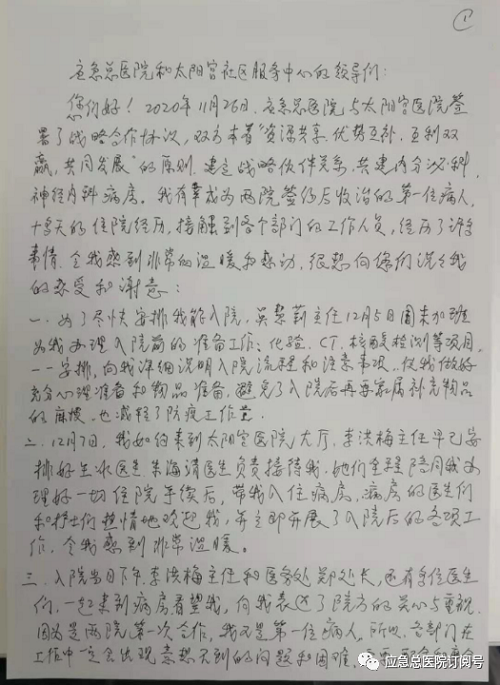 1
应急总医院和太阳宫社区服务中心的领导们:
您们好！2020年11月26日,应急总医院与太阳宫医院签
署了战略合作协议,双方本着"资源共享、优势互补、互利双
赢、共同发展"的原则,建立战略伙伴关系,共建内分泌科、
神经内科病房。我有幸成为两院签约后收治的第一位病人,
十多天的住院经历,接触到各个部门的工作人员,经历了许多
事情,令我感到非常的温暖和感动,很想向您们说说我
的感受和谢意:
一、为了尽快安排我能入院,吴慧莉主任12月5日周末加班
为我办理入院前的准备工作:化验、CT、核酸检测等项目
一一安排,向我详细说明入院流程和注意事项,使我做好
充分心理准备和物品准备,避免了入院后再要家属补充物品
的麻烦,也减轻了防疫工作量。
二、12月7日,我如约来到太阳宫医院大厅,李洪梅主任早已安
排好朱海清医生负责接待我。她们全程陪同我办
理好一切住院手续后,带我入住病房,病房的医生们
和护士们热情地欢迎我,并立即开展了入院后的各项工
作,令我感到非常温暖。
三、入院当日下午,李洪梅主任和医务处郑处长,还有多位医生
们,一起来到病房看望我,向我表达了院方的关心与重视,
因为是两院第一次合作,我又是第一位病人,所以,各部门在
工作中一定会出现意想不到的问题和困难,
应急总医院订阅号